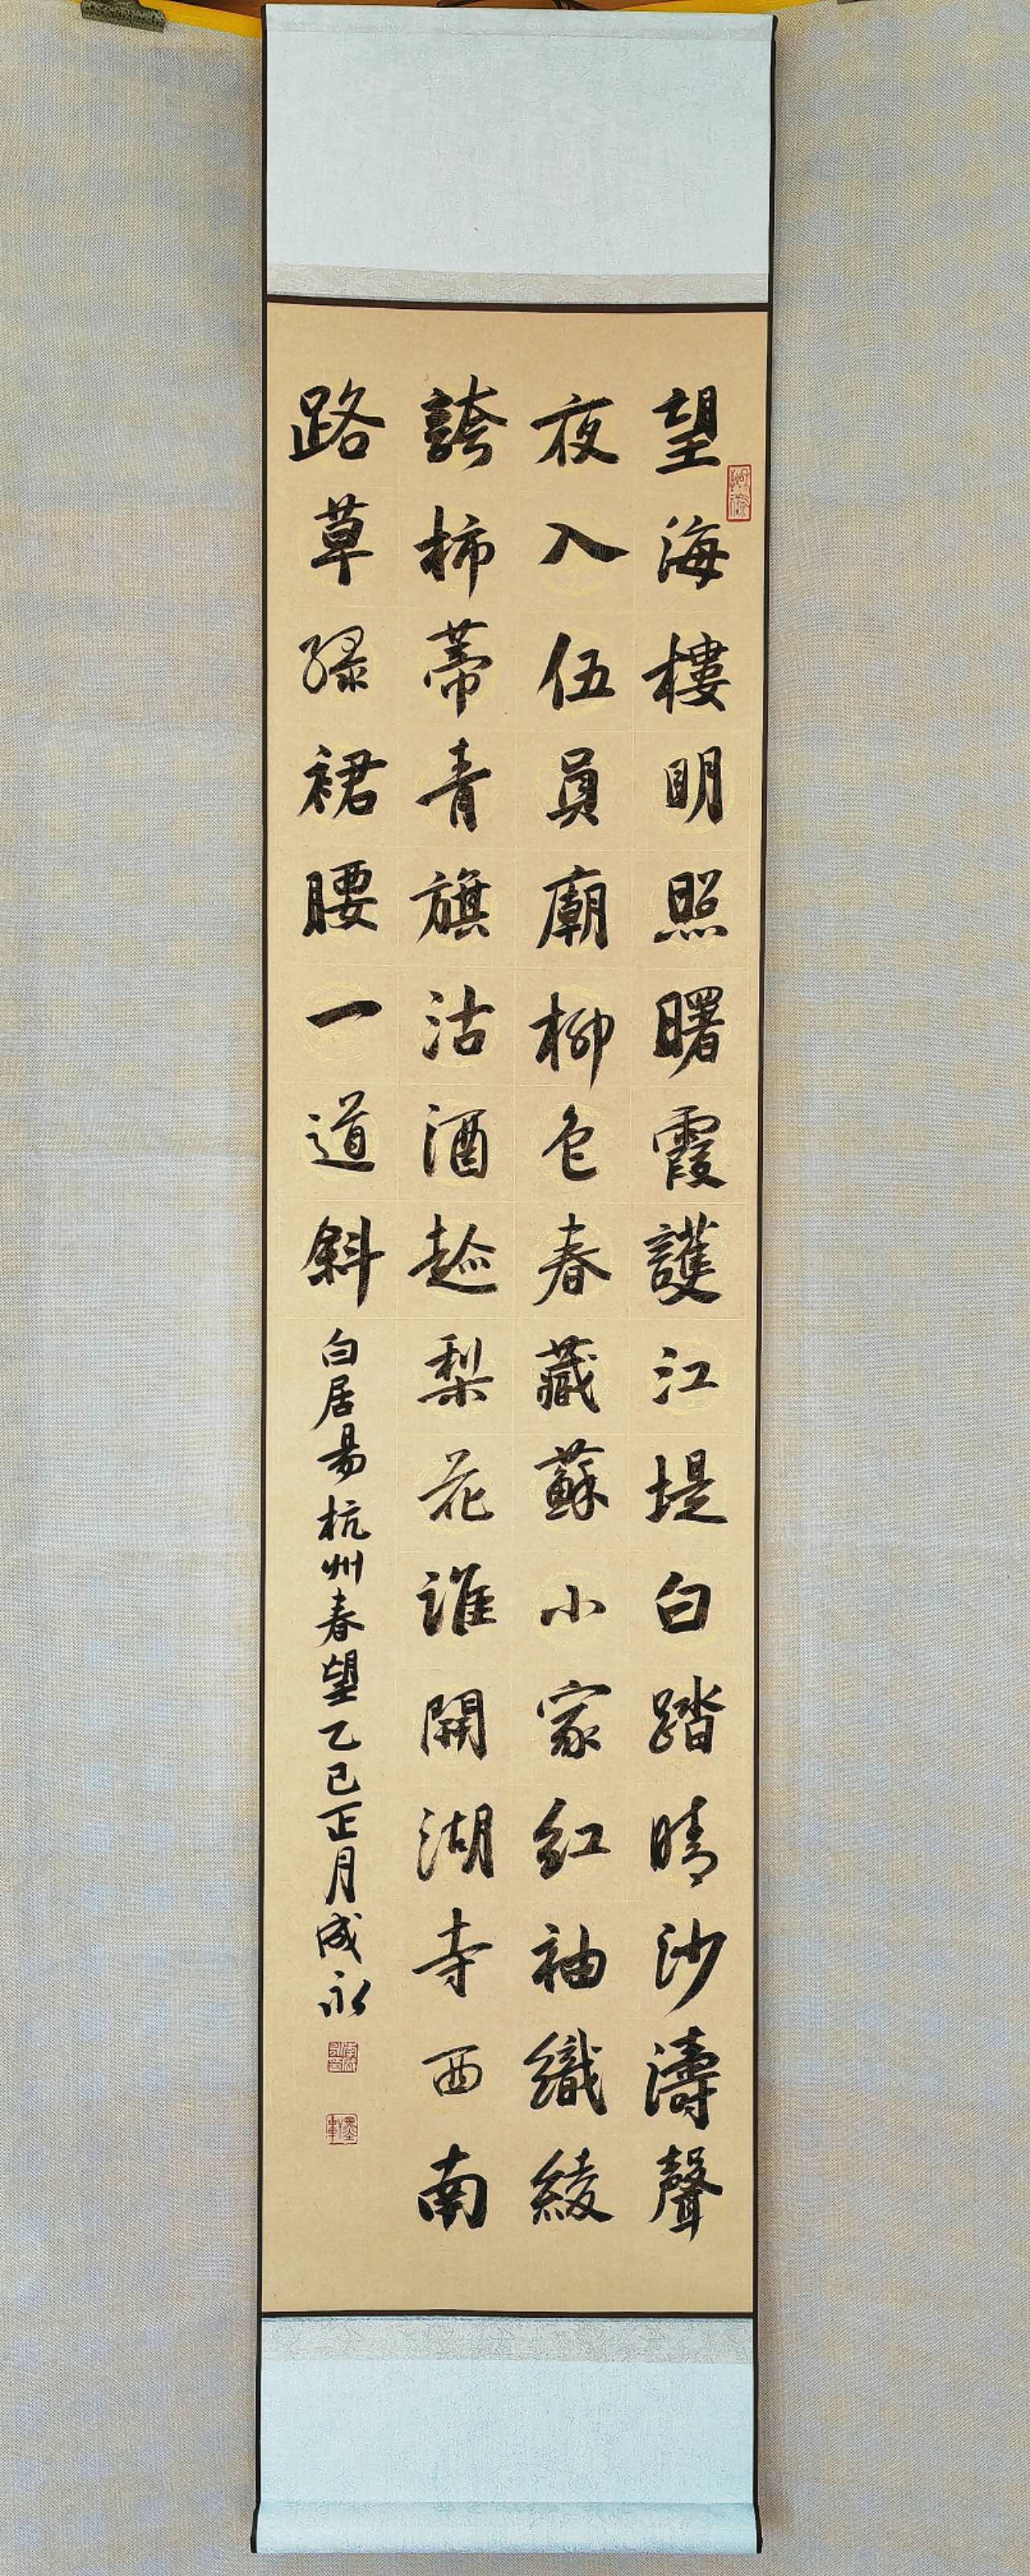 望海樓明照曙霞護江堤白踏晴沙濤聲
夜入伍員廟柳色春藏蘇小家紅袖織綾
誇柿蒂青旗沽酒趂梨花誰開湖寺西南
路草绿裙腰一道斜
白居易杭州春望乙巳正月成永